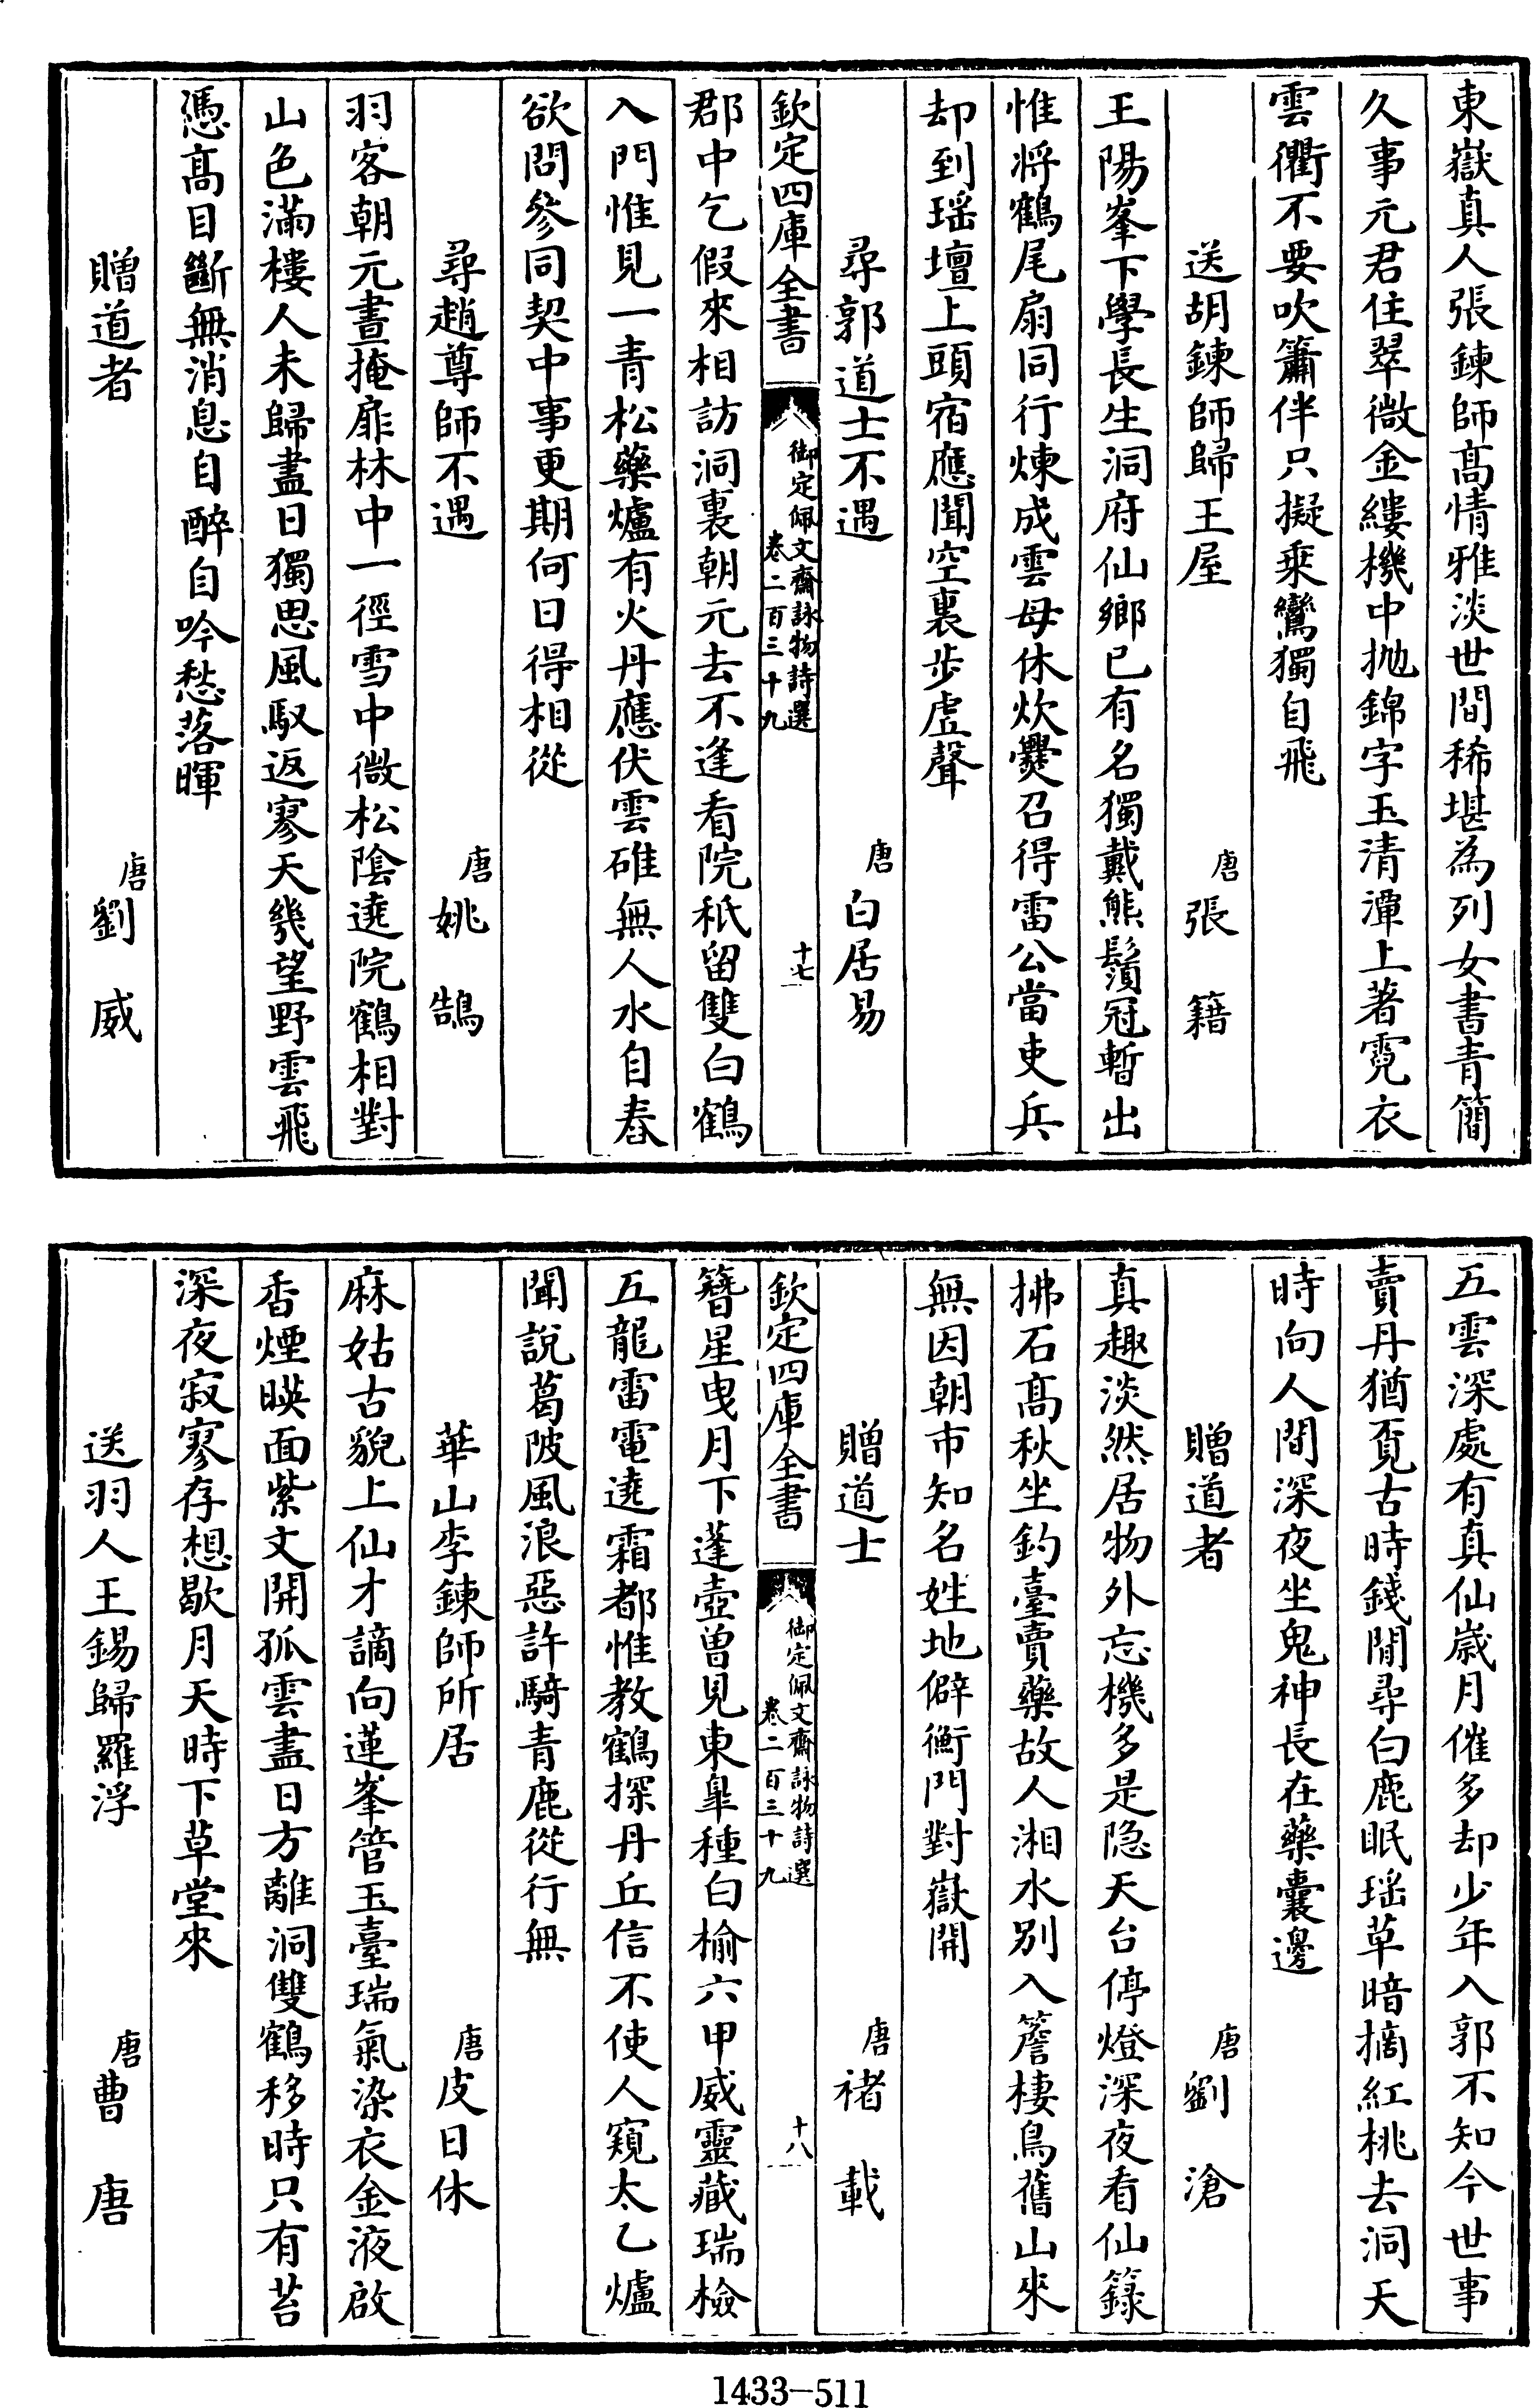 東嶽真人張鍊師髙情雅淡世間稀堪為列女書青簡
久事元君住翠微金縷機中抛錦字玉清潭上著霓衣
雲衢不要吹簫伴只擬乗鸞獨自飛
送胡鍊師歸王屋 唐張籍
王陽峯下學長生洞府仙鄉已有名獨戴熊鬚冠暫出
惟将鶴尾扇同行煉成雲母休炊爨召得雷公當吏兵
却到瑶壇上頭宿應聞空裏步虛聲
尋郭道士不遇 唐白居易
欽定四庫全書 御定佩文齋詠物詩選 卷二百三十九 十七
郡中乞假來相訪洞裏朝元去不逢看院秖留雙白鶴
入門惟見一青松藥爐有火丹應伏雲碓無人水自舂
欲問參同契中事更期何日得相從
尋趙尊師不遇 唐姚鵠
羽客朝元晝掩扉林中一徑雪中微松陰遶院鶴相對
山色滿樓人未歸盡日獨思風馭返寥天幾望野雲飛
憑髙目斷無消息自醉自吟愁落暉
贈道者 唐劉威
五雲深處有真仙歲月催多却少年入郭不知今世事
賣丹猶覔古時錢閒尋白鹿眠瑶草暗摘紅桃去洞天
時向人間深夜坐鬼神長在藥囊邊
贈道者 唐劉滄
真趣淡然居物外忘機多是隐天台停燈深夜看仙籙
拂石髙秋坐釣臺賣藥故人湘水别入簷棲鳥舊山來
無因朝市知名姓地僻衡門對嶽開
贈道士 唐禇載
欽定四庫全書 御定佩文齋詠物詩選 卷二百三十九 十八
簪星曳月下蓬壺曽見東臯種白榆六甲威靈藏瑞檢
五龍雷電遶霜都惟教鶴探丹丘信不使人窺太乙爐
聞說葛陂風浪惡許騎青鹿從行無
華山李鍊師所居 唐皮日休
麻姑古貌上仙才謫向蓮峯管玉臺瑞氣染衣金液啟
香煙暎面紫文開孤雲盡日方離洞雙鶴移時只有苔
深夜寂寥存想歇月天時下草堂來
送羽人王錫歸羅浮 唐曹唐
1433-511